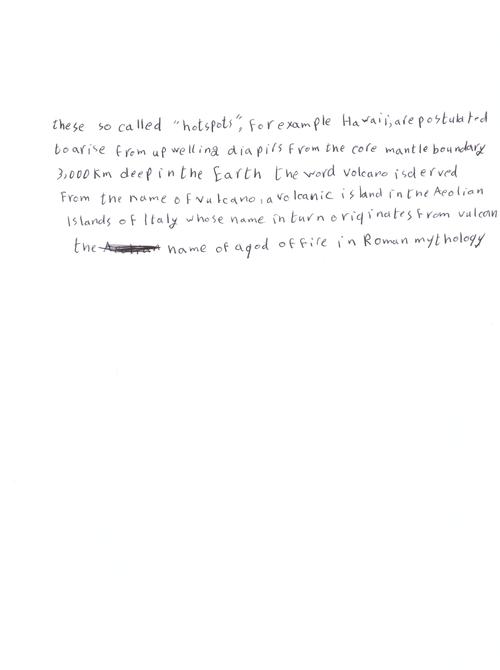 these so called "hotspots", for example Hawaii, are postulated
to arise from up welling diapirs from the core mantle boundary
3,000 Km deep in the Earth the word volcano is derved
From the name of vulcano, a volcanic island in the Aeolian
Islands of Italy whose name in turn originates from vulcan
the name of a god of fire in Roman mythology